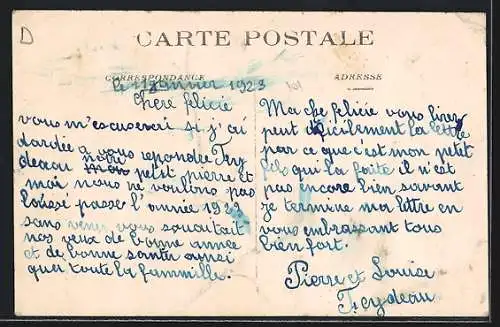 D
CARTE POSTALE
CORRESPONDANCE
ADRESSE
le 11 Janvier 1923
101
chère felicie
vous m'escuserai si j'ai
dardée a vous repondre Frey
deau notre petit pierre et
moi nous ne voulons pas
laissé passé l'année 1922
sans venir vous souaitait
nos veux de bonne année
et de bonne santer ainsi
que toute la fammille.
Ma che felicie vous lirer
peut dificilement la lettre
par ce que c'est mon petet
fils qui la faite il n'est
pas encore bien savant
je termine ma lettre en
vous embrassant tous
bien fort.
Pierre et Louise
Freydeau